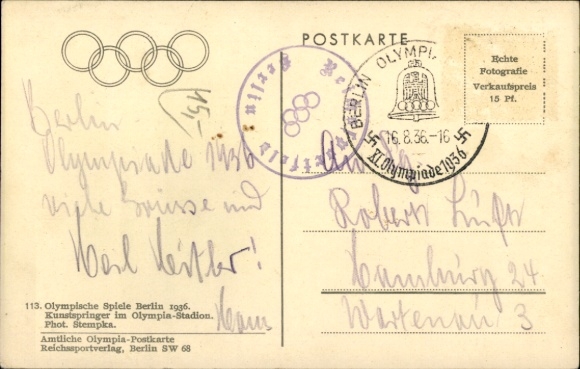 POSTKARTE
Echte
Fotografie
Verkaufspreis
15 Pf.
BERLIN OLYMPIA
16.8.36.-16
XI. Olympiade 1936
Berlin
15,-
Berlin
Olympiade 1936
viele Grüsse und
Heil Hitler!
An
Robert
Hamburg 24
Wartenau 3
113. Olympische Spiele Berlin 1936.
Kunstspringer im Olympia-Stadion.
Phot. Stempka.
Amtliche Olympia-Postkarte
Reichssportverlag, Berlin SW 68